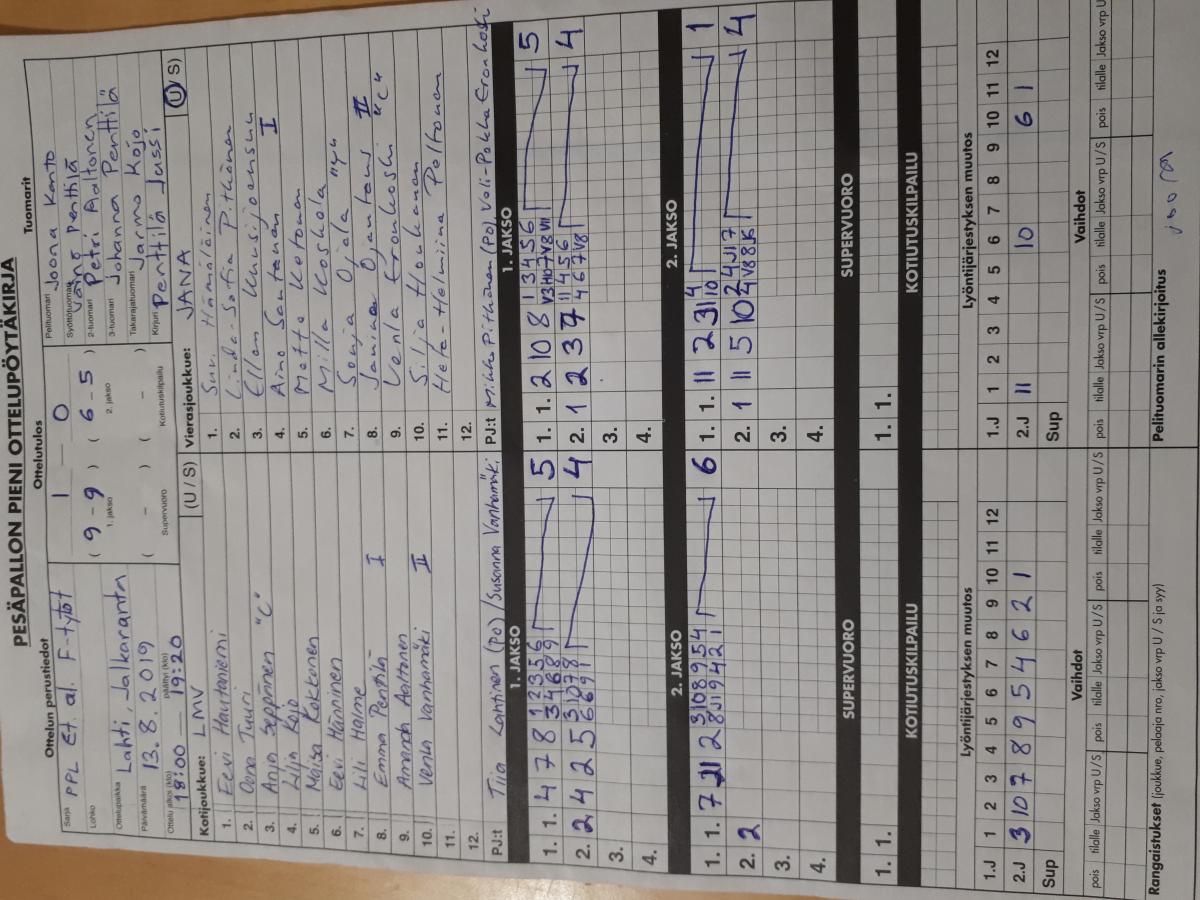 PESÄPALLON PIENI OTTELUPÖYTÄKIRJA
Ottelun perustiedot
Sarja PPL Et. al. F-tytöt
Lohko
Ottelupaikka Lahti, Jalkaranta
Päivämäärä 13.8.2019
Ottelu alkoi (klo) 18:00 päättyi (klo) 19:20
Ottelutulos
1 - 0
( 9 - 9 ) ( 6 - 5 )
1. jakso 2. jakso
( - ) ( - )
Supervuoro Kotiutuskilpailu
Tuomarit
Pelituomari Joona Kanto
Syöttötuomari Väinö Penttilä
2-tuomari Petri Aaltonen
3-tuomari Johanna Penttilä
Takarajatuomari Jarmo Kojo
Kirjuri Penttilä Jussi
Kotijoukkue: LMV (U / S)
1. Eevi Hautaniemi
2. Oona Tuuri
3. Anin Seppänen "C"
4. Lilja Kojo
5. Maisa Kokkonen
6. Eevi Hänninen
7. Lili Halme
8. Emma Penttilä I
9. Amanda Aaltonen
10. Venla Vanhamäki II
11.
12.
PJ:t Tiia Lahtinen (PO) / Susanna Vanhamäki
Vierasjoukkue: JANA (U / S)
1. Suvi Hämäläinen
2. Linda-Sofia Pitkänen
3. Ellen Kuusijoensuu
4. Aino Santanen I
5. Mette Kotonen
6. Milla Koskola
7. Sonja Ojala "4"
8. Janina Ojantaus II
9. Venla Eronkoski "C"
10. Silja Honkanen
11. Heta-Helmiina Peltonen
12.
PJ:t Mikko Pitkänen (PO), Voli-Pekka Eronkoski
1. JAKSO
1. 1. 4 7 8 1 2 3 5 6 5
2. 2 4 2 5 4
3.
4.
1. JAKSO
1. 1. 2 10 8 1 3 4 5 6 5
2. 1 2 3 7 11 4 5 6 4
3.
4.
2. JAKSO
1. 1. 7 2 3 10 8 9 5 4 6
2. 2
3.
4.
2. JAKSO
1. 1. 11 2 3 1
2. 1 11 5 10 4
3.
4.
SUPERVUORO
1. 1.
SUPERVUORO
1. 1.
KOTIUTUSKILPAILU
KOTIUTUSKILPAILU
Lyöntijärjestyksen muutos
1.J 1 2 3 4 5 6 7 8 9 10 11 12
2.J 3 10 7 8 9 5 4 6 2 1
Sup
Lyöntijärjestyksen muutos
1.J 1 2 3 4 5 6 7 8 9 10 11 12
2.J 11 10 6 1
Sup
Vaihdot
pois tilalle Jakso vrp U/S pois tilalle Jakso vrp U/S pois tilalle Jakso vrp U/S
Vaihdot
pois tilalle Jakso vrp U/S pois tilalle Jakso vrp U/S pois tilalle Jakso vrp U/S
Rangaistukset (joukkue, pelaaja nro, jakso vrp U / S ja syy)
Pelituomarin allekirjoitus